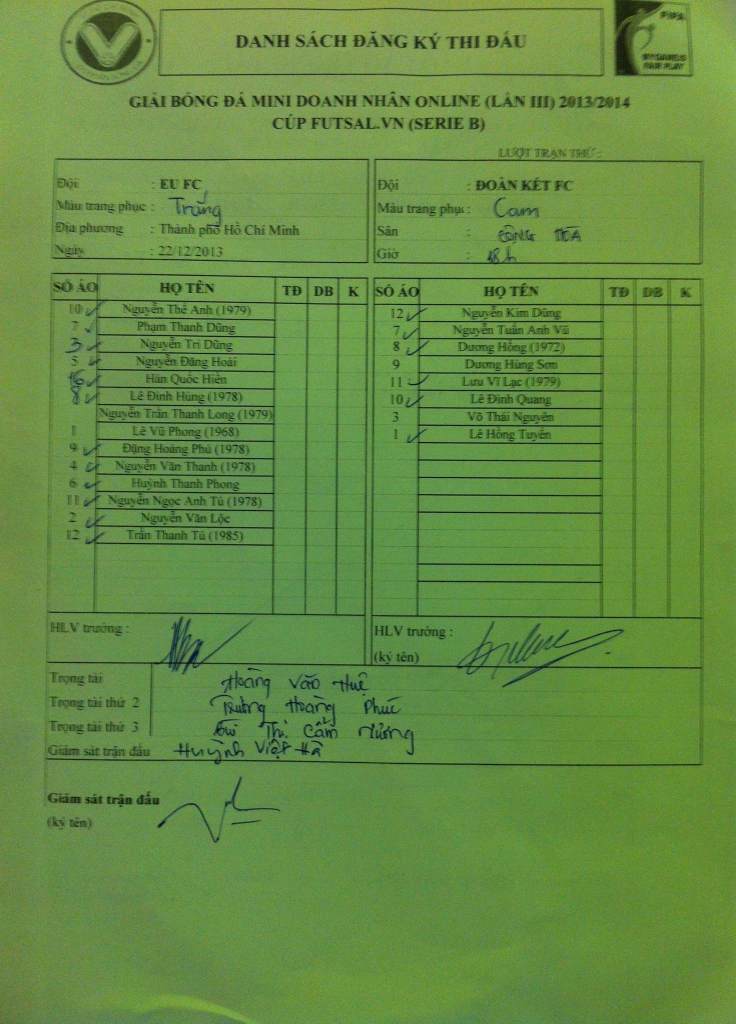 DANH SÁCH ĐĂNG KÝ THI ĐẤU
FIFA
MY GAME IS
FAIR PLAY
GIẢI BÓNG ĐÁ MINI DOANH NHÂN ONLINE (LẦN III) 2013/2014
CÚP FUTSAL.VN (SERIE B)
LƯỢT TRẬN THỨ :
Đội : EU FC
Màu trang phục : Trắng
Địa phương : Thành phố Hồ Chí Minh
Ngày : 22/12/2013
Đội : ĐOÀN KẾT FC
Màu trang phục : Cam
Sân : CỘNG HÒA
Giờ : 18h
SỐ ÁO HỌ TÊN TĐ DB K
10 Nguyễn Thế Anh (1979)
7 Phạm Thanh Dũng
3 Nguyễn Trí Dũng
5 Nguyễn Đăng Hoài
16 Hàn Quốc Hiền
8 Lê Đình Hùng (1978)
Nguyễn Trần Thanh Long (1979)
1 Lê Vũ Phong (1968)
9 Đặng Hoàng Phú (1978)
4 Nguyễn Văn Thanh (1978)
6 Huỳnh Thanh Phong
11 Nguyễn Ngọc Anh Tú (1978)
2 Nguyễn Văn Lộc
12 Trần Thanh Tú (1985)
SỐ ÁO HỌ TÊN TĐ DB K
12 Nguyễn Kim Dũng
7 Nguyễn Tuấn Anh Vũ
8 Dương Hồng (1972)
9 Dương Hùng Sơn
11 Lưu Vĩ Lạc (1979)
10 Lê Đình Quang
3 Võ Thái Nguyên
1 Lê Hồng Tuyên
HLV trưởng :
HLV trưởng :
(ký tên)
Trọng tài Hoàng Văn Huệ
Trọng tài thứ 2 Trương Hoàng Phúc
Trọng tài thứ 3 Bùi Thị Cẩm Hương
Giám sát trận đấu Huỳnh Việt Hà
Giám sát trận đấu
(ký tên)